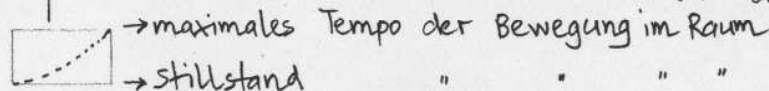 → maximales Tempo der Bewegung im Raum
→ stillstand " " " "